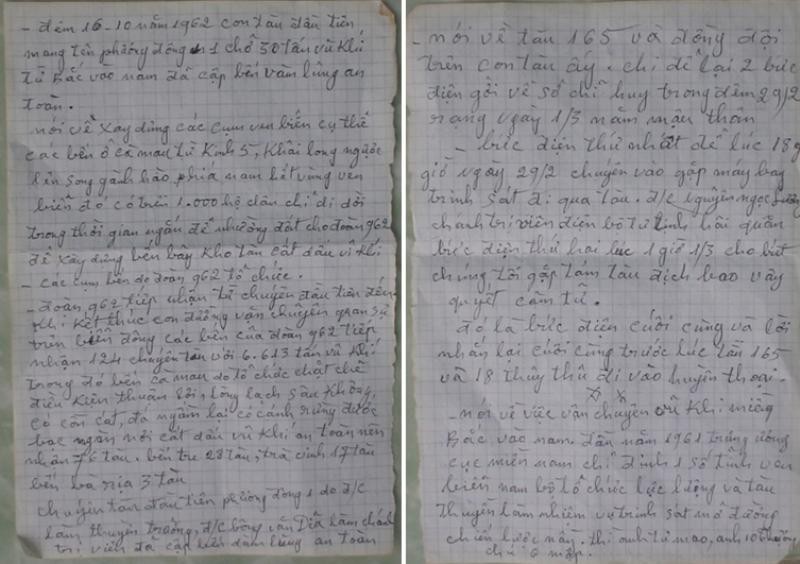 - đêm 16-10 năm 1962 con tàu đầu tiên
mang tên phương đông 1 chở 30 tấn vũ khí
từ Bắc vào nam đã cập bến vàm lũng an
toàn.
nói về xây dựng các cụm ven biển cụ thể
các bến ở cà mau từ Kinh 5, Khai long ngược
lên sông gành hào, phía nam hết vùng ven
biển đó có trên 1.000 hộ dân chỉ di dời
trong thời gian ngắn để nhường đất cho đoàn 962
để xây dựng bến bãy kho tàn cất dấu vũ khí
- các cụm bến do đoàn 962 tổ chức.
- đoàn 962 tiếp nhận từ chuyến đầu tiên đến
khi kết thúc con đường vận chuyển quân sự
trên biển đông các bến của đoàn 962 tiếp
nhận 124 chuyến tàu với 6.613 tấn vũ khí
trong đó bến cà mau do tổ chức chặt chẽ
điều kiện thuận lợi, lòng lạch sâu không
có cồn cát, đá ngầm lại có cánh rừng đước
bạc ngàn nơi cất dấu vũ khí an toàn nên
nhận 76 tàu. bến tre 28 tàu, trà vinh 17 tàu
bến bà rịa 3 tàu
chuyến tàu đầu tiên phương đông 1 do đ/c
làm thuyền trưởng, đ/c bông văn Dĩa làm chánh
trị viên đã cập bến vàm lũng an toàn
- nói về tàu 165 và đồng đội
trên con tàu ấy. chỉ để lại 2 bức
điện gởi về sở chỉ huy trong đêm 29/2
rạng ngày 1/3 năm mậu thân
- bức điện thứ nhất để lúc 18
giờ ngày 29/2 chuyển vào gặp máy bay
trinh sát đi qua tàu. đ/c nguyễn ngọc
chánh trị viên điện bộ tư lịnh hải quân
bức điện thứ hai lúc 1 giờ 1/3 cho biết
chúng tôi gặp tám tàu địch bao vây
quyết cảm tử.
đó là bức điện cuối cùng và lời
nhắn lại cuối cùng trước lúc tàu 165
và 18 thủy thủ đi vào huyền thoại.
- nói về việc vận chuyển vũ khí miền
Bắc vào nam. đầu năm 1961 trung ương
cục miền nam chỉ định 1 số tỉnh ven
biển nam bộ tổ chức lực lượng và tàu
thuyền làm nhiệm vụ trinh sát mở đường
chiến lược này. thì anh tư mao, anh 10